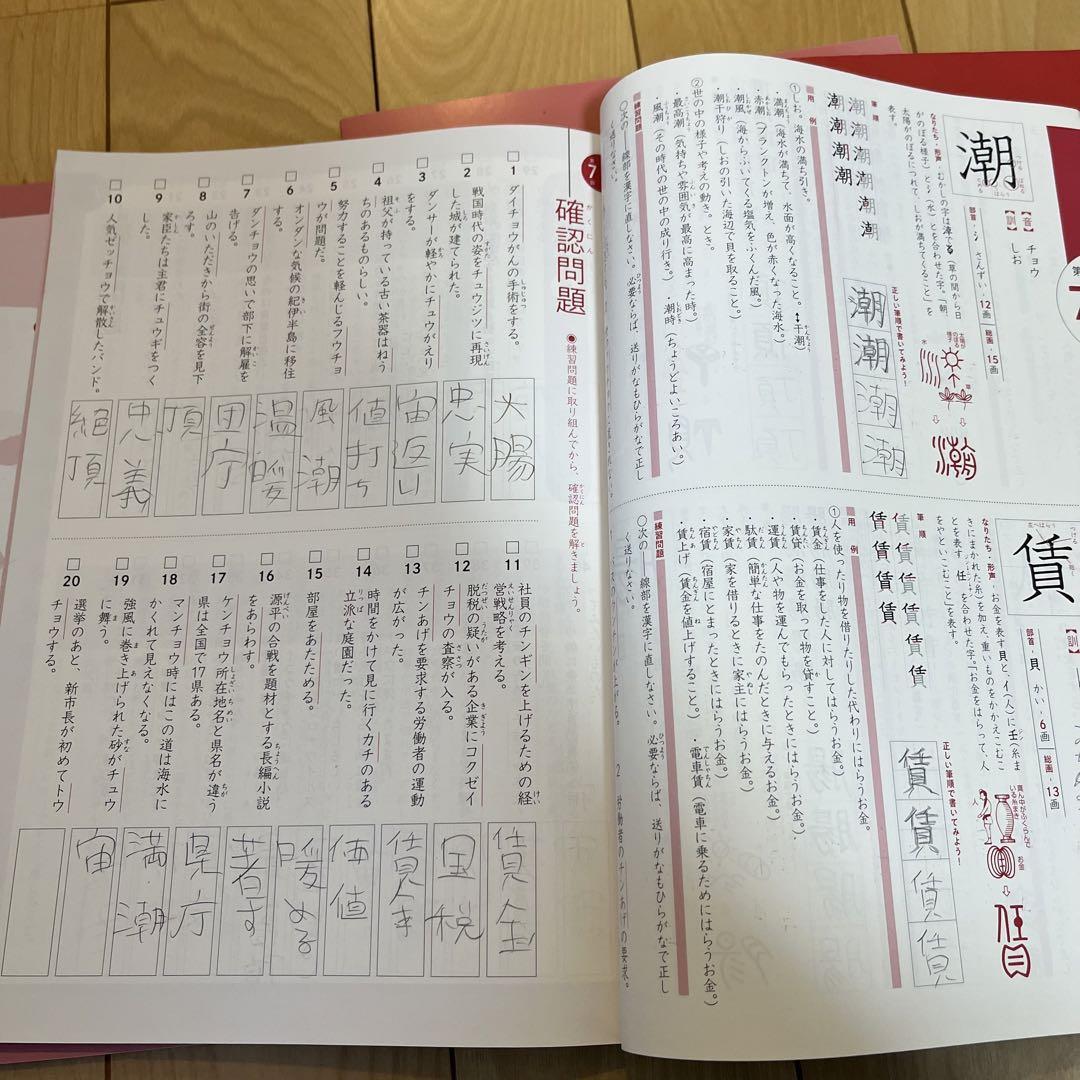 潮
【音】チョウ
【訓】しお
部首・氵 さんずい・12画 総画・15画
筆順
潮潮潮潮潮潮潮潮潮潮
正しい筆順で書いてみよう！
潮潮潮潮
用例
①しお。海水の満ち引き。
・満潮（海水が満ちて、水面が高くなること。↕干潮）
・赤潮（プランクトンが増え、色が赤くなった海水。）
・潮風（海からふいてくる塩気をふくんだ風。）
・潮干狩り（しおの引いた海辺で貝を取ること。）
②世の中の様子や考えの動き。とき。
・最高潮（気持ちや雰囲気が最高に高まった時。）・潮時（ちょうどよいころあい。）
風潮（その時代の世の中の成り行き。）
練習問題
〇次の―線部を漢字に直しなさい。必要ならば、送りがなもひらがなで正しく送りなさい。
賃
【訓】
部首・貝 かい・6画 総画・13画
筆順
正しい筆順で書いてみよう！
賃賃賃賃
用例
①人を使ったり物を借りたりした代わりにはらうお金。
・賃金（仕事をした人に対してはらうお金。）
・賃貸（お金を取って物を貸すこと。）
・運賃（人や物を運んでもらったときにはらうお金。）
・駄賃（簡単な仕事をたのんだときに与えるお金。）
・家賃（家を借りるときに家主にはらうお金。）
・宿賃（宿屋にとまったときにはらうお金。）
・賃上げ（賃金を値上げすること。）・電車賃（電車に乗るためにはらうお金。）
練習問題
〇次の―線部を漢字に直しなさい。必要ならば、送りがなもひらがなで正しく送りなさい。
2 労働者のチンあげの要求。
第7回
確認問題
●練習問題に取り組んでから、確認問題を解きましょう。
1 ダイチョウがんの手術をする。
大腸
2 戦国時代の姿をチュウジツに再現した城が建てられた。
忠実
3 ダンサーが軽やかにチュウがえりをする。
宙返り
4 祖父が持っている古い茶器はねうちのあるものらしい。
値打ち
5 努力することを軽んじるフウチョウが問題だ。
風潮
6 オンダンな気候の紀伊半島に移住する。
温暖
7 ダンチョウの思いで部下に解雇を告げる。
団庁
8 山のいただきから街の全容を見下ろす。
頂
9 家臣たちは主君にチュウギをつくした。
忠義
10 人気ゼッチョウで解散したバンド。
絶頂
11 社員のチンギンを上げるための経営戦略を考える。
賃金
12 脱税の疑いがある企業にコクゼイチョウの査察が入る。
国税
13 チンあげを要求する労働者の運動が広がった。
14 時間をかけて見に行くカチのある立派な庭園だった。
価値
15 部屋をあたためる。
暖める
16 源平の合戦を題材とする長編小説をあらわす。
著す
17 ケンチョウ所在地名と県名が違う県は全国で17県ある。
県庁
18 マンチョウ時にはこの道は海水にかくれて見えなくなる。
満潮
19 強風に巻き上げられた砂がチュウに舞う。
宙
20 選挙のあと、新市長が初めてトウチョウする。